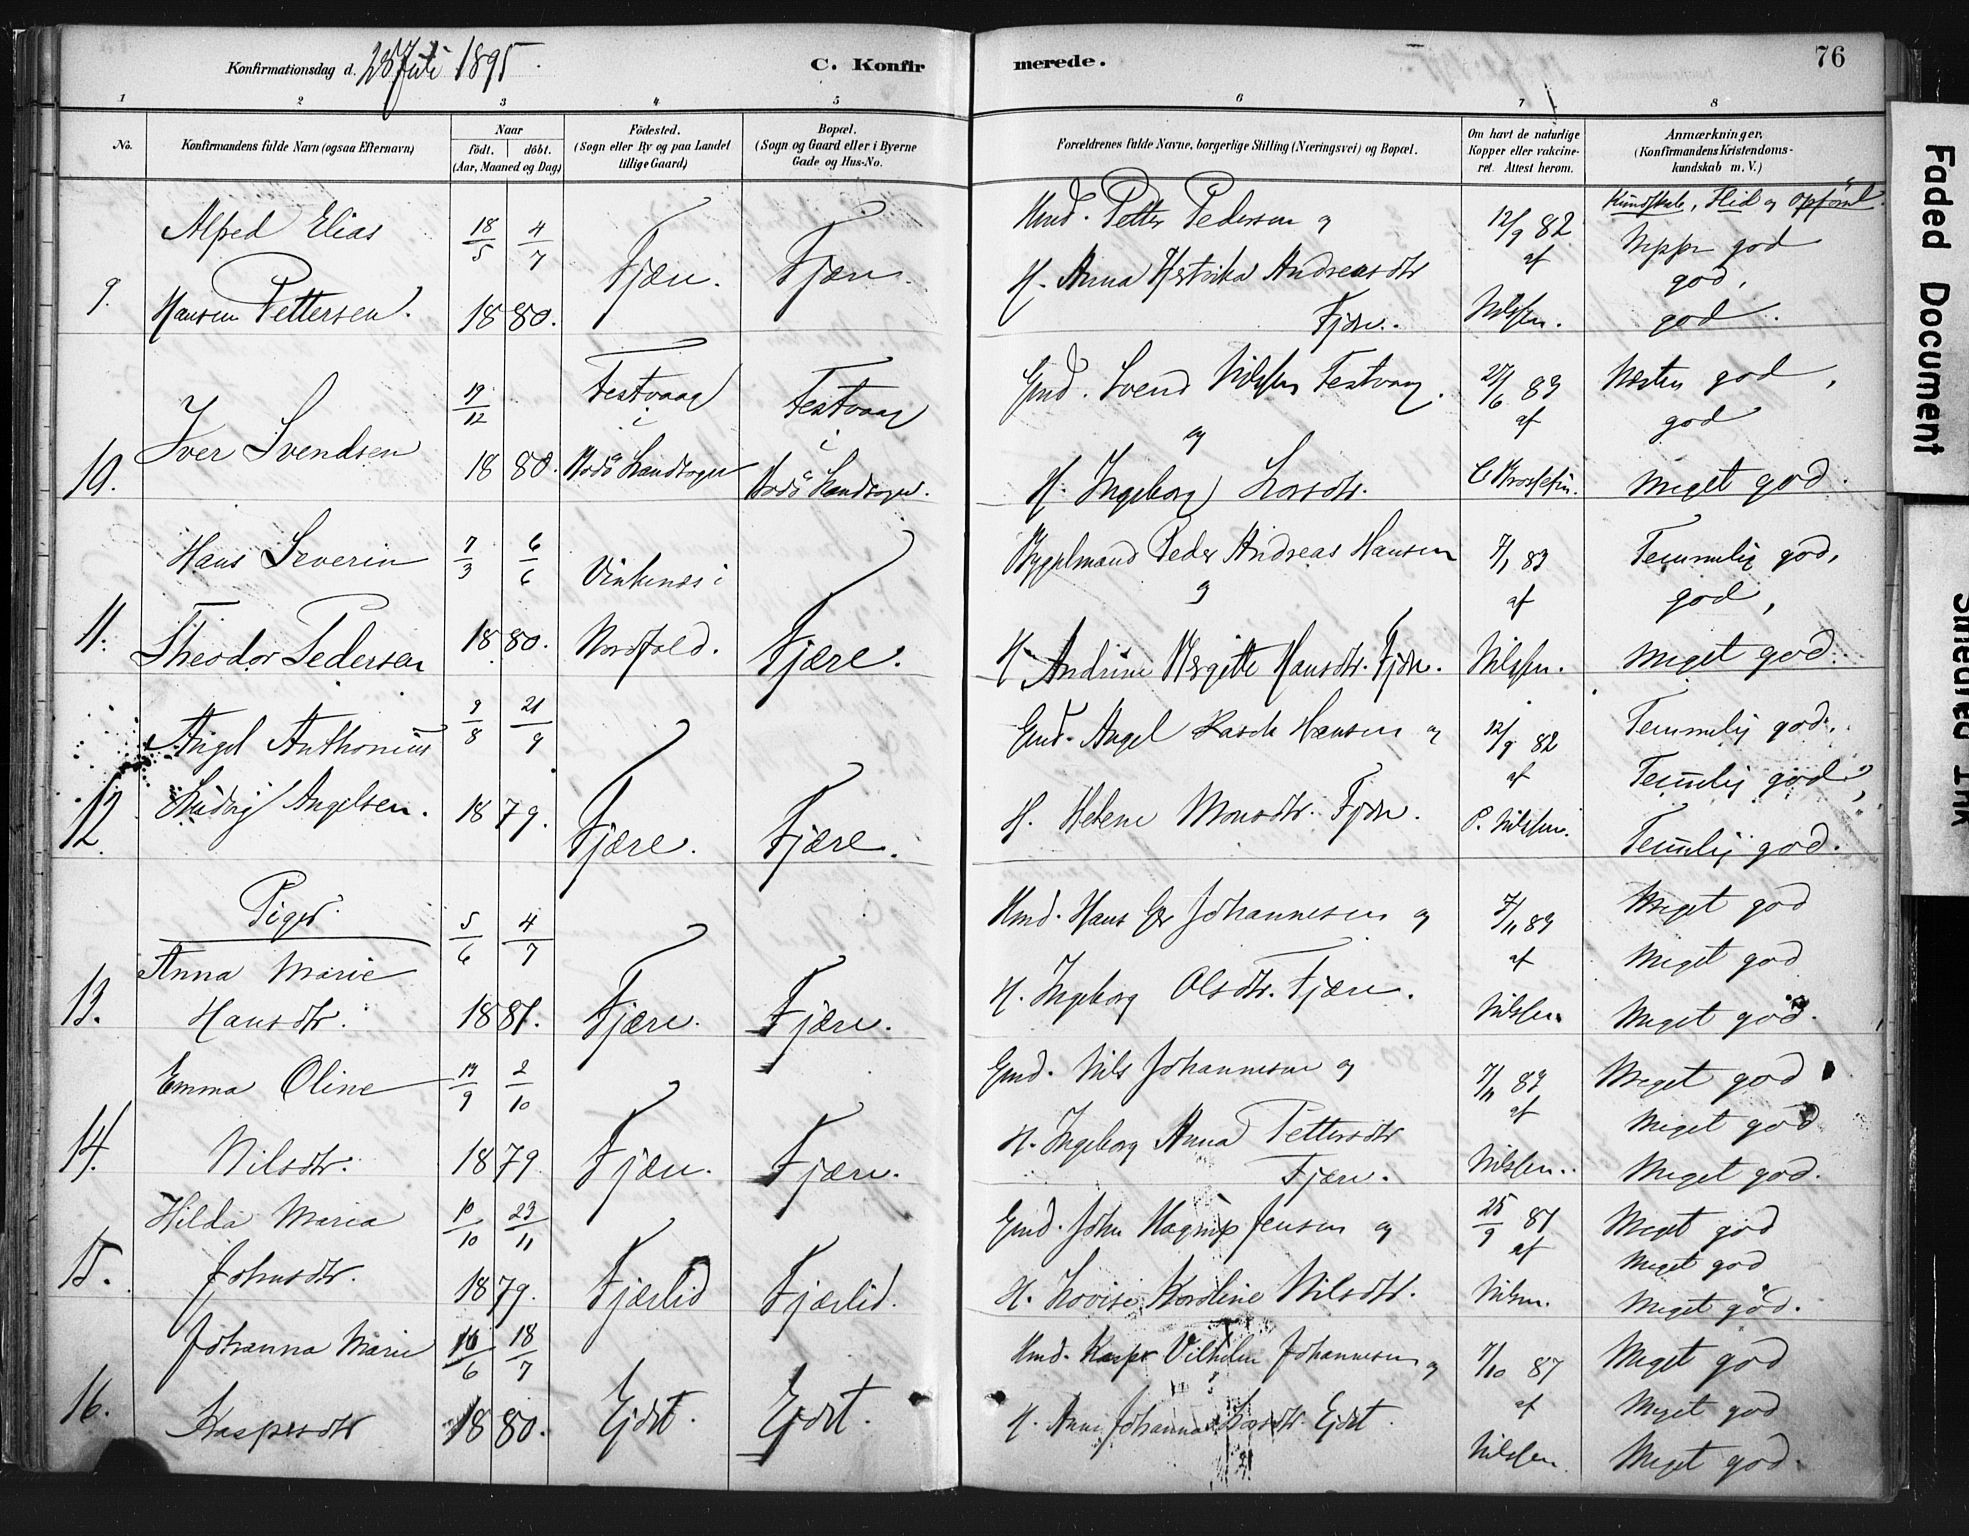 Konfirmationsdag d. 28 Juli 1895. C. Konfirmerede. 76
1 2 3 4 5 6 7 8
No. Konfirmandens fulde Navn (ogsaa Efternavn) Naar født. døbt. (Aar, Maaned og Dag) Fødested. (Sogn eller By og paa Landet tillige Gaard) Bopæl. (Sogn og Gaard eller i Byerne Gade og Hus-No. Forældrenes fulde Navne, borgerlige Stilling (Næringsvei) og Bopæl. Om havt de naturlige Kopper eller vakcineret. Attest herom. Anmærkninger. (Konfirmandens Kristendomskundskab m. V.)
Kundskab, Flid og Opførsel.
Alfred Elias 18/5 4/7 Hmd. Petter Pedersen og 12/9 82 god
9. Hansen Pettersen. 1880. Fjære. Fjære. H. Anna Andreasdtr af god,
Fjære. Nilssen. god.
Iver Svendsen 19/12 Festvaag i Festvaag i Gmd. Svend Nilssen Festvaag. 27/6 83 Næsten god,
og af god
10. 1880. Bodø Landsogn Bodø Landsogn. H. Ingeborg Larsdtr. Meget god.
Hans Severin 7/3 6/6 Vinkenes i Peder Andreas Hansen 7/1 83 Temmelig god,
og af god,
11. Theodor Pedersen 1880. Nordfold. Fjære. H. Andrine Bergitte Hansdtr. Fjære. Nilssen. Meget god.
Angel Anthonius 9/8 21/9 Gmd. Angel Rasch Hansen og 12/9 82 Temmelig god,
af Temmelig god,
12. Ludvig Angelsen. 1879. Fjære. Fjære. H. Helene Monsdtr. Fjære. P. Nilssen. Temmelig god.
Piger.
Anna Marie 5/6 4/7 Hmd. Hans Johannesen og 7/11 83 Meget god
af Meget god
13. Hansdtr. 1881. Fjære. Fjære. H. Ingeborg Olsdtr. Fjære. Nilssen. Meget god.
Emma Oline 19/9 2/10 Gmd. Nils Johannesen og 7/11 83 Meget god
H. Ingeborg Anna Pettersdtr af Meget god
14. Nilsdtr. 1879 Fjære. Fjære. Fjære. Nilssen. Meget god.
Hilda Maria 10/10 23/11 Gmd. John Hagrup Jensen og 25/9 81 Meget god
af Meget god
15. Johnsdtr. 1879. Fjærlid Fjærlid. H. Lovise Karoline Nilsdtr. Nilsen. Meget god.
Johanna Marie 16/6 18/7 Hmd. Kasper Vilhelm Johannesen og 7/10 87 Meget god
af Meget god
16. Kaspersdtr 1880. Ejdet. Ejdet. H. Anne Johanna Ejdet. Nilssen. Meget god.
Faded Document